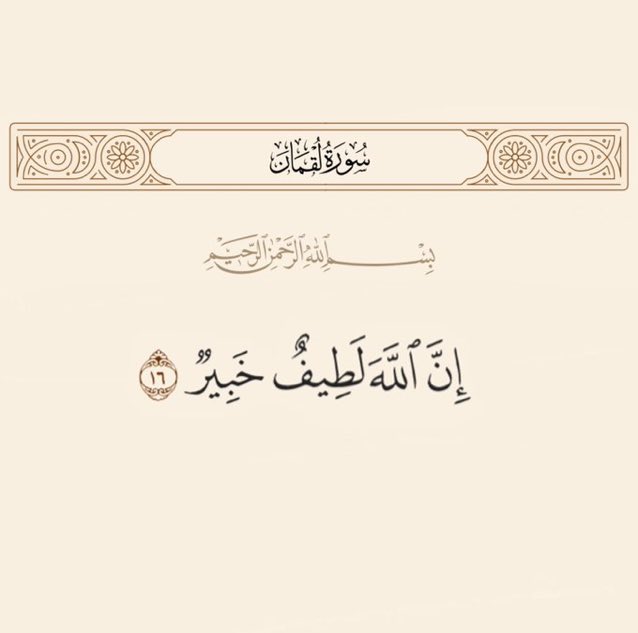 سُورَةُ لُقْمَانَ
بِسْمِ اللَّهِ الرَّحْمَٰنِ الرَّحِيمِ
إِنَّ ٱللَّهَ لَطِيفٌ خَبِيرٌ ١٦